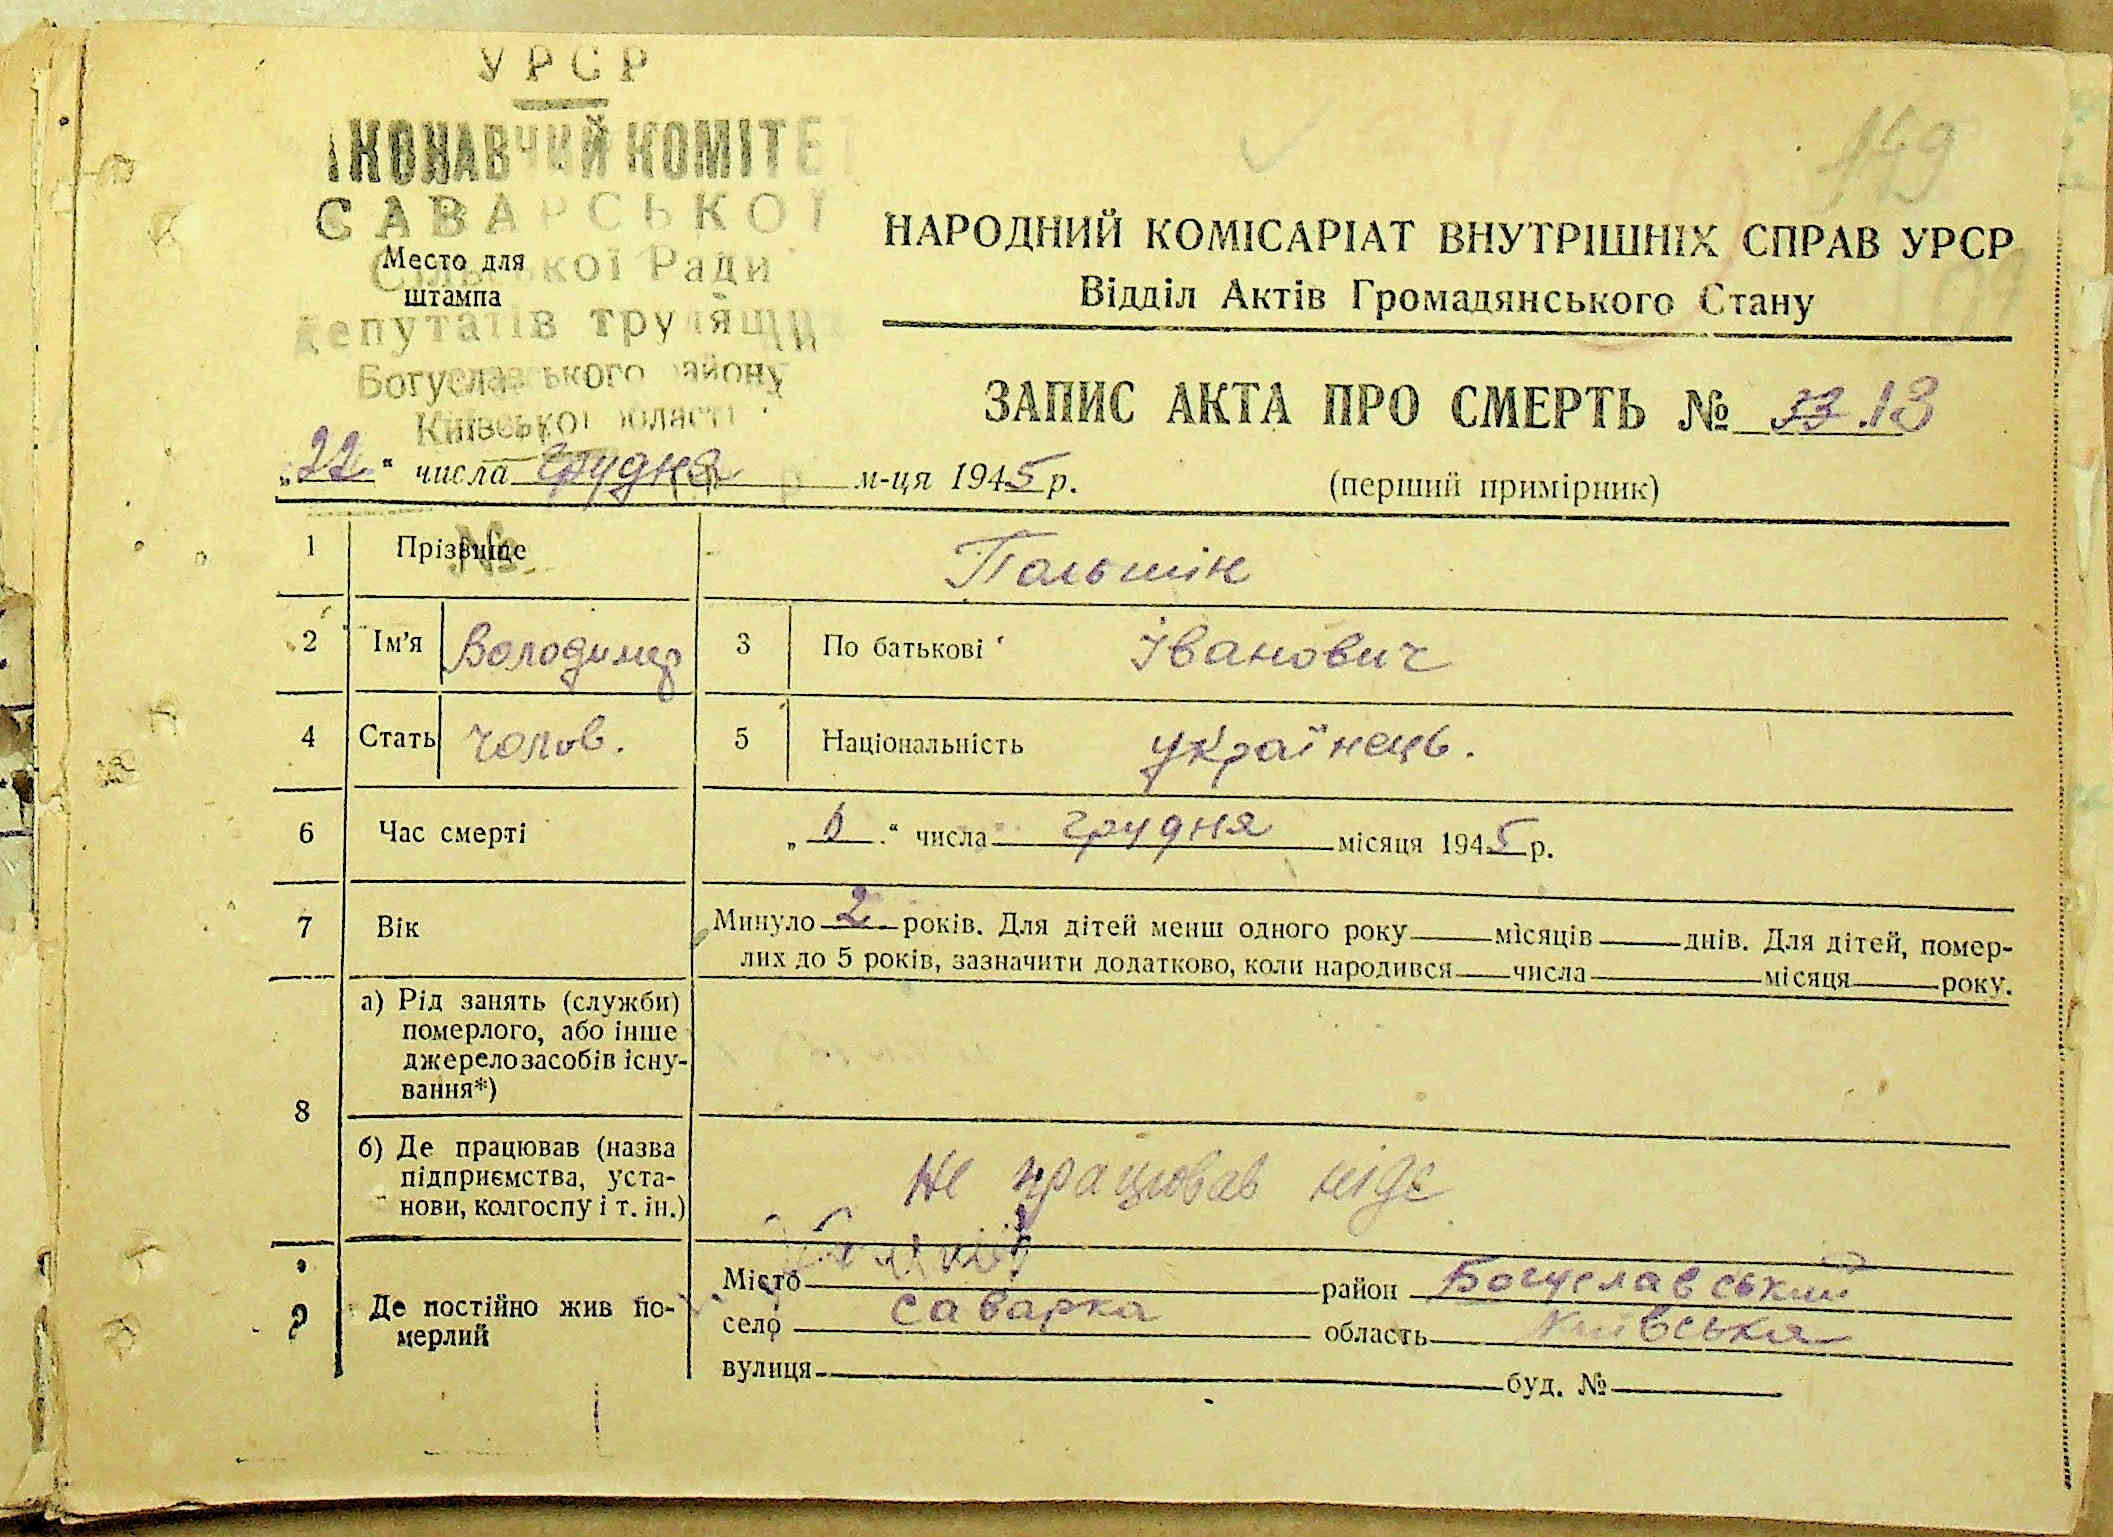 УРСР
149
ІКОНАВЧИЙ КОМІТЕТ
САВАРСЬКОЇ
Место для
штампа
Сільської Ради
депутатів трудящих
Богуславського району
Київської області
НАРОДНИЙ КОМІСАРІАТ ВНУТРІШНІХ СПРАВ УРСР
Відділ Актів Громадянського Стану
ЗАПИС АКТА ПРО СМЕРТЬ № 33.13
„22“ числа грудня м-ця 1945 р.
(перший примірник)
№
1 Прізвище Польшін
2 Ім'я Володимер 3 По батькові Іванович
4 Стать чолов. 5 Національність українець.
6 Час смерті „ “ числа грудня місяця 1945 р.
7 Вік Минуло 2 років. Для дітей менш одного року місяців днів. Для дітей, помер-
лих до 5 років, зазначити додатково, коли народився числа місяця року.
8 а) Рід занять (служби)
померлого, або інше
джерело засобів існу-
вання*)
б) Де працював (назва
підприємства, уста-
нови, колгоспу і т. ін.)
Не працював ніде
9 Де постійно жив по-
мерлий
Місто район Богуславський
село Саварка область Київська
вулиця буд. №